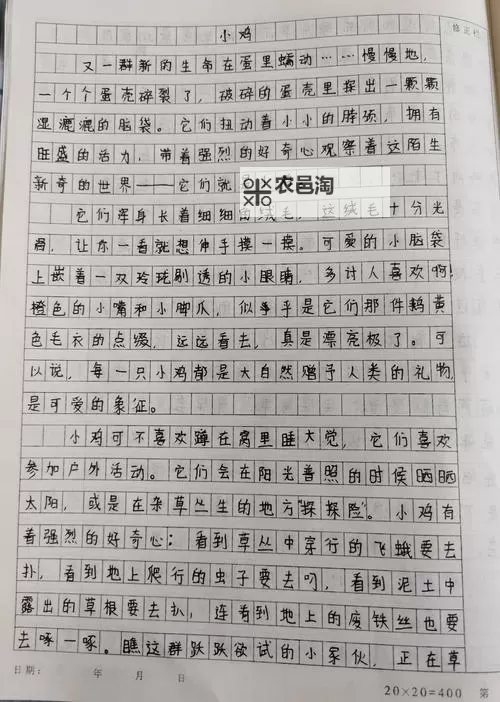 修正栏
小鸡
又一群新的生命在蛋里蠕动……慢慢地,
一个个蛋壳碎裂了,破碎的蛋壳里探出一颗颗
湿漉漉的脑袋。它们扭动着小小的脖颈,拥有
旺盛的活力,带着强烈的好奇心观察着这陌生
新奇的世界——它们就
农邑淘
它们浑身长着细细的绒毛,这绒毛十分光
滑,让你一看就想伸手摸一摸。可爱的小脑袋
上嵌着一双玲珑剔透的小眼睛,多讨人喜欢啊!
橙色的小嘴和小脚爪,似乎乎是它们那件鹅黄
色毛衣的点缀,远远看去,真是漂亮极了。可
以说,每一只小鸡都是大自然赠予人类的礼物,
是可爱的象征。
小鸡可不喜欢蹲在窝里睡大觉,它们喜欢
参加户外活动。它们会在阳光普照的时候晒晒
太阳,或是在杂草丛生的地方“探探险”。小鸡有
着强烈的好奇心:看到草丛中穿行的飞蛾要去
扑,看到地上爬行的虫子要去叼,看到泥土中
露出的草根要去扒,连看到地上的废铁丝也要
去啄一啄。瞧这群跃跃欲试的小家伙,正在草
日期: 年 月 日
20×20=400 第